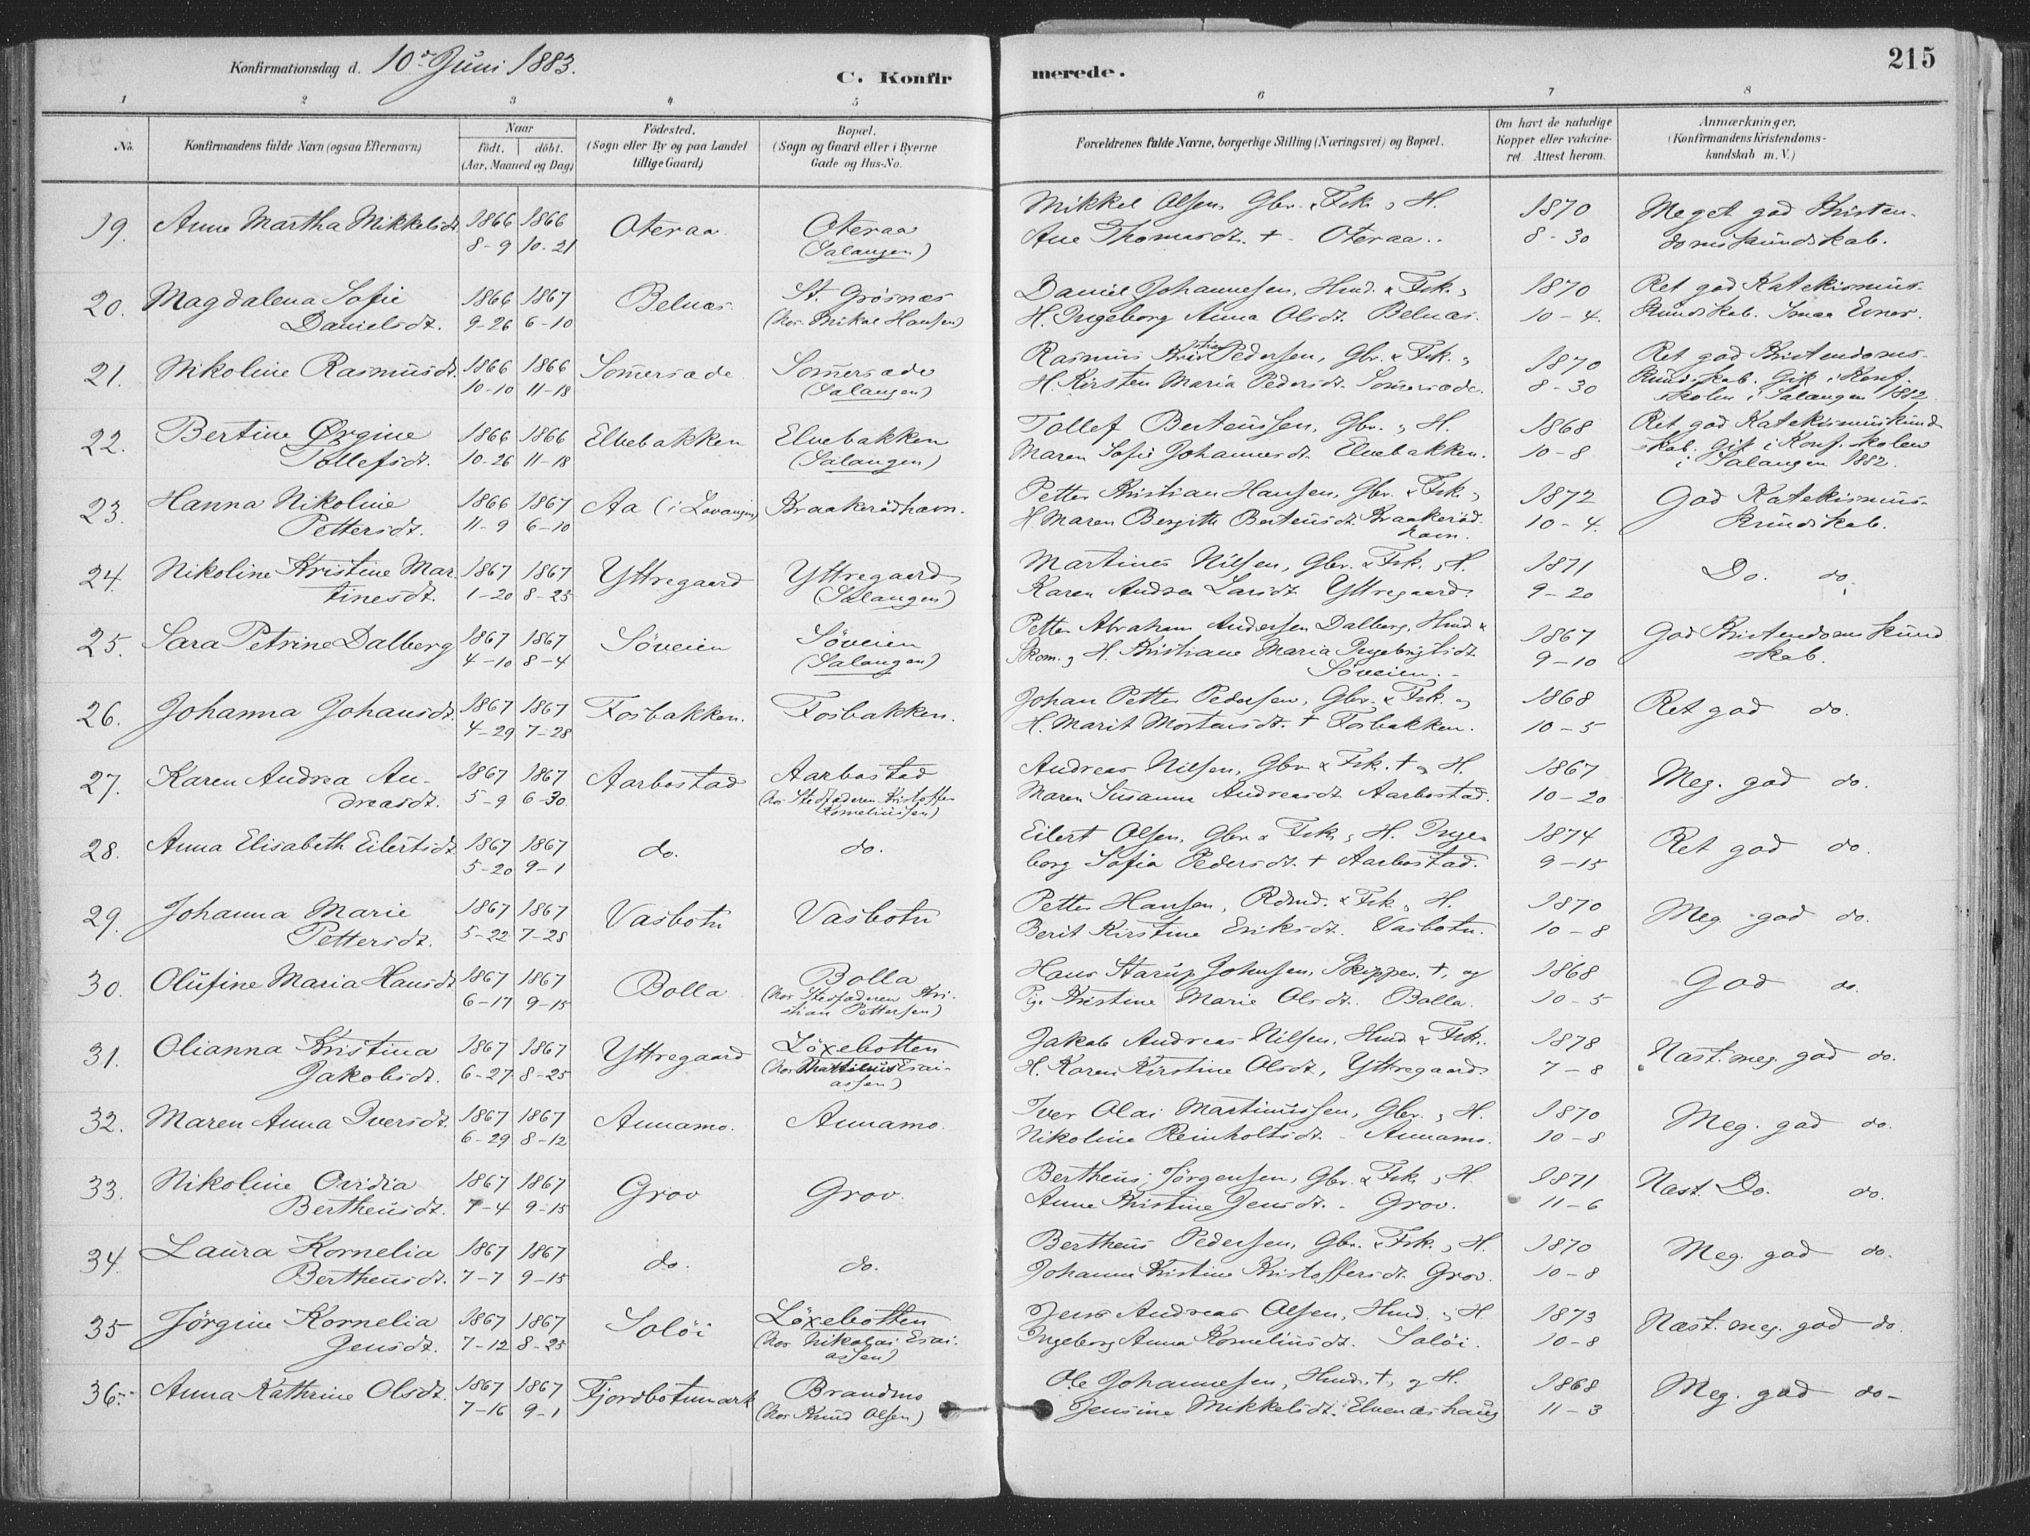 Konfirmationsdag d. 10de Juni 1883.
C. Konfir
merede.
215
1 2 3 4 5 6 7 8
No. Konfirmandens fulde Navn (ogsaa Efternavn) Naar født. døbt. (Aar, Maaned og Dag) Fødested. (Sogn eller By og paa Landet tillige Gaard) Bopæl. (Sogn og Gaard eller i Byerne Gade og Hus-No. Forældrenes fulde Navne, borgerlige Stilling (Næringsvei) og Bopæl. Om havt de naturlige Kopper eller vakcineret. Attest herom. Anmærkninger. (Konfirmandens Kristendomskundskab m. V.)
19. Anne Martha Mikkelsdt. 1866 1866 Oteraa Oteraa Mikkel Olsen, Gbr. & Fsk. og H. 1870 Meget god Kristen-
8-9 10-21 (Salangen) Ane Thomasdt. + Oteraa. 8-30 domskundskab.
20. Magdalena Sofie 1866 1867 Belnæs St. Grøsnæs Daniel Johannesen, Hmd. & Fsk. og 1870 Ret god Katekismus-
Danielsdt. 9-26 6-10 (hos Mikal Hansen) H. Ingeborg Anna Olsdt. Belnæs. 10-4. kundskab. Smaa Evner.
21. Nikoline Rasmusdt. 1866 1866 Somersæde Somersæde Rasmus Kristian Pedersen, Gbr. & Fsk. og 1870 Ret god Kristendoms-
10-10 11-18 (Salangen) H. Kirsten Maria Pedersdt. Somersæde. 8-30 kundskab. Gik i Konf.
skolen i Salangen 1882.
22. Bertine Ørgine 1866 1866 Elvebakken Elvebakken Tollef Berteussen, Gbr. og H. 1868 Ret god Katekismuskund
Tollefsdt. 10-26 11-18 (Salangen) Maren Sofie Johannesdt. Elvebakken. 10-8 skab. Gik i Konf. skolen
i Salangen 1882.
23. Hanna Nikoline 1866 1867 Aa (i Lavangen) Kraakerødhavn. Petter Kristian Hansen, Gbr. & Fsk. og 1872 God Katekismus-
Pettersdt. 11-9 6-10 H. Maren Bergitte Berteusdt. Kraakerød- 10-4. kundskab.
havn.
24. Nikoline Kristine Mar- 1867 1867 Yttregaard Yttregaard Martines Nilsen, Gbr. & Fsk. og H. 1871 Do. do.
tinesdt. 1-20 8-25 (Salangen) Karen Andrea Larsdt. Yttregaard. 9-20
25. Sara Petrine Dalberg 1867 1867 Søveien Søveien Petter Abraham Andersen Dalberg, Hmd. & 1867 God Kristendomskund
4-10 8-4 (Salangen) Skom. og H. Kristiane Maria Ingebrigtsdt. 9-10 skab.
Søveien.
26. Johanna Johansdt. 1867 1867 Fosbakken. Fosbakken. Johan Petter Pedersen, Gbr. & Fsk. og 1868 Ret god do.
4-29 7-28 H. Marit Mortensdt. + Fosbakken. 10-5
27. Karen Andrea An- 1867 1867 Aarbostad Aarbostad Andreas Nilsen, Gbr. & Fsk. + og H. 1867 Meg. god do.
dreasdt. 5-9 6-30 (hos Stedfaderen Kristoffer Maren Susanna Andreasdt. Aarbostad. 10-20
Korneliussen)
28. Anna Elisabeth Eilertsdt. 1867 1867 do. do. Eilert Olsen, Gbr. & Fsk. og H. Inge- 1874 Ret god do.
5-20 9-1 borg Sofia Pedersdt. + Aarbostad. 9-15
29. Johanna Marie 1867 1867 Vasbotn Vasbotn Petter Hansen, Rdmd. & Fsk. og H. 1870 Meg. god do.
Pettersdt. 5-22 7-28 Berit Kirstine Eriksdt. Vasbotn. 10-8
30. Olufine Maria Hansdt 1867 1867 Bolla Bolla Hans Starup Johnsen, Skipper. +, og 1868 God do.
6-17 9-15 (hos Stedfaderen Kri- Pige Kristine Marie Olsdt. Bolla. 10-5
stian Pettersen)
31. Olianna Kristina 1867 1867 Yttregaard Løxebotten Jakob Andreas Nilsen, Hmd. & Fsk. 1878 Næst. meg. god do.
Jakobsdt. 6-27 8-25 (hos Mattilius Esai- H. Karen Kirstine Olsdt, Yttregaard. 7-8
assen)
32. Maren Anna Iversdt. 1867 1867 Annamo. Annamo. Iver Olai Martinussen, Gbr. og H. 1870 Meg. god do.
6-29 8-12 Nikoline Reinholtsdt. - Annamo. 10-8
33. Nikoline Ovidia 1867 1867 Grov Grov. Bertheus Jørgensen, Gbr. & Fsk. og H. 1871 Næst. Do. do.
Bertheusdt. 7-4 9-15 Anne Kristine Jensdt. - Grov. 11-6
34. Laura Kornelia 1867 1867 do. do. Bertheus Pedersen, Gbr. & Fsk. og H. 1870 Meg. god do.
Bertheusdt. 7-7 9-15 Johanna Kristine Kristoffersdt. Grov. 10-8
35 Jørgine Kornelia 1867 1867 Soløi Løxebotten Jens Andreas Olsen, Hmd. og H 1873 Næst. meg. god do.
Jensdt. 7-12 8-25 (hos Nikolai Esai- Ingeborg Anna Korneliusdt. Soløi. 10-8
assen)
36. Anna Kathrine Olsdt. 1867 1867 Fjordbotnmark Brandmo Ole Johannesen, Hmd. +, og H. 1868 Meg. god do-
7-16 9-1 (hos Knud Olsen) Jensine Mikkelsdt. Elvenæshaug 11-3